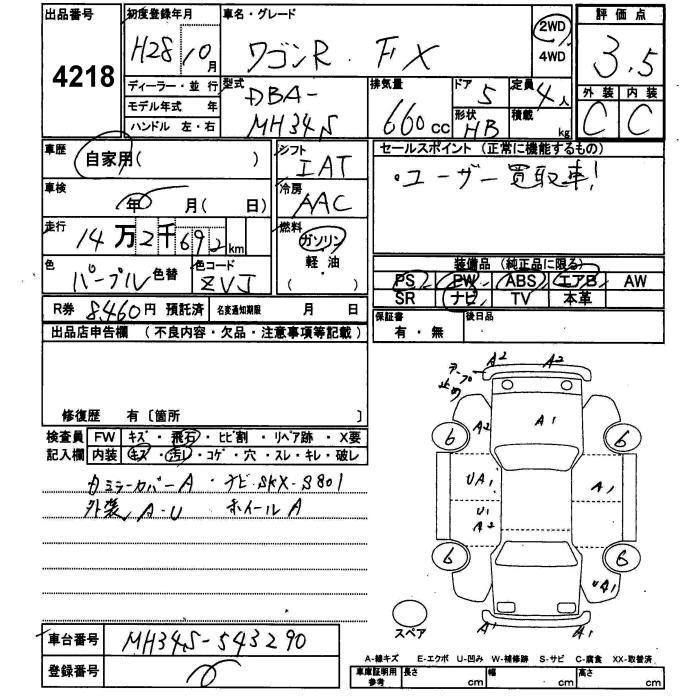 出品番号
4218
初度登録年月
H28 10月
ディーラー・並 行
モデル年式 年
ハンドル 左・右
車名・グレード
ワゴンR FX
2WD
4WD
型式
DBA-
MH34S
排気量
660cc
ドア
5
形状
HB
定員
4人
積載
kg
評 価 点
3.5
外 装 内 装
C C
車歴
自家用( )
車検
年 月( 日)
走行
14万2千692km
色
パープル 色替
色コード
ZVJ
シフト
IAT
冷房
AAC
燃料
ガソリン
軽・油
セールスポイント (正常に機能するもの)
・ユーザー買取車!
装備品 (純正品に限る)
PS PW ABS エアB AW
SR ナビ TV 本革
保証書
有 ・ 無
後日品
R券 8,460円 預託済
名変通知期限 月 日
出品店申告欄 (不良内容・欠品・注意事項等記載)
修復歴 有〔箇所 〕
検査員
記入欄
FW キズ ・ 飛石 ・ ヒビ割 ・ リペア跡 ・ X要
内装 キズ ・ 汚レ ・ コゲ ・ 穴 ・ スレ ・ キレ ・ 破レ
ミラーカバーA ・ナビSKX-S801
外装 A-U ホイールA
テープ
止め
A2 A2
A1
A2
6 6
UA1 A1
U1
A2
6 6
UA1
A1 A1
スペア
車台番号
MH34S-543290
登録番号
A-線キズ E-エクボ U-凹み W-補修跡 S-サビ C-腐食 XX-取替済
車庫証明用
参考
長さ cm
幅 cm
高さ cm